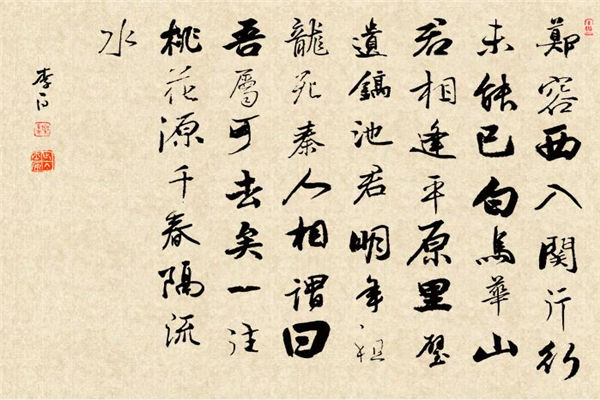 鄭客西入關行行
未能已白馬華山
君相逢平原里璧
遺鎬池君明年祖
龍死秦人相謂曰
吾屬可去矣一往
桃花源千春隔流
水
李白